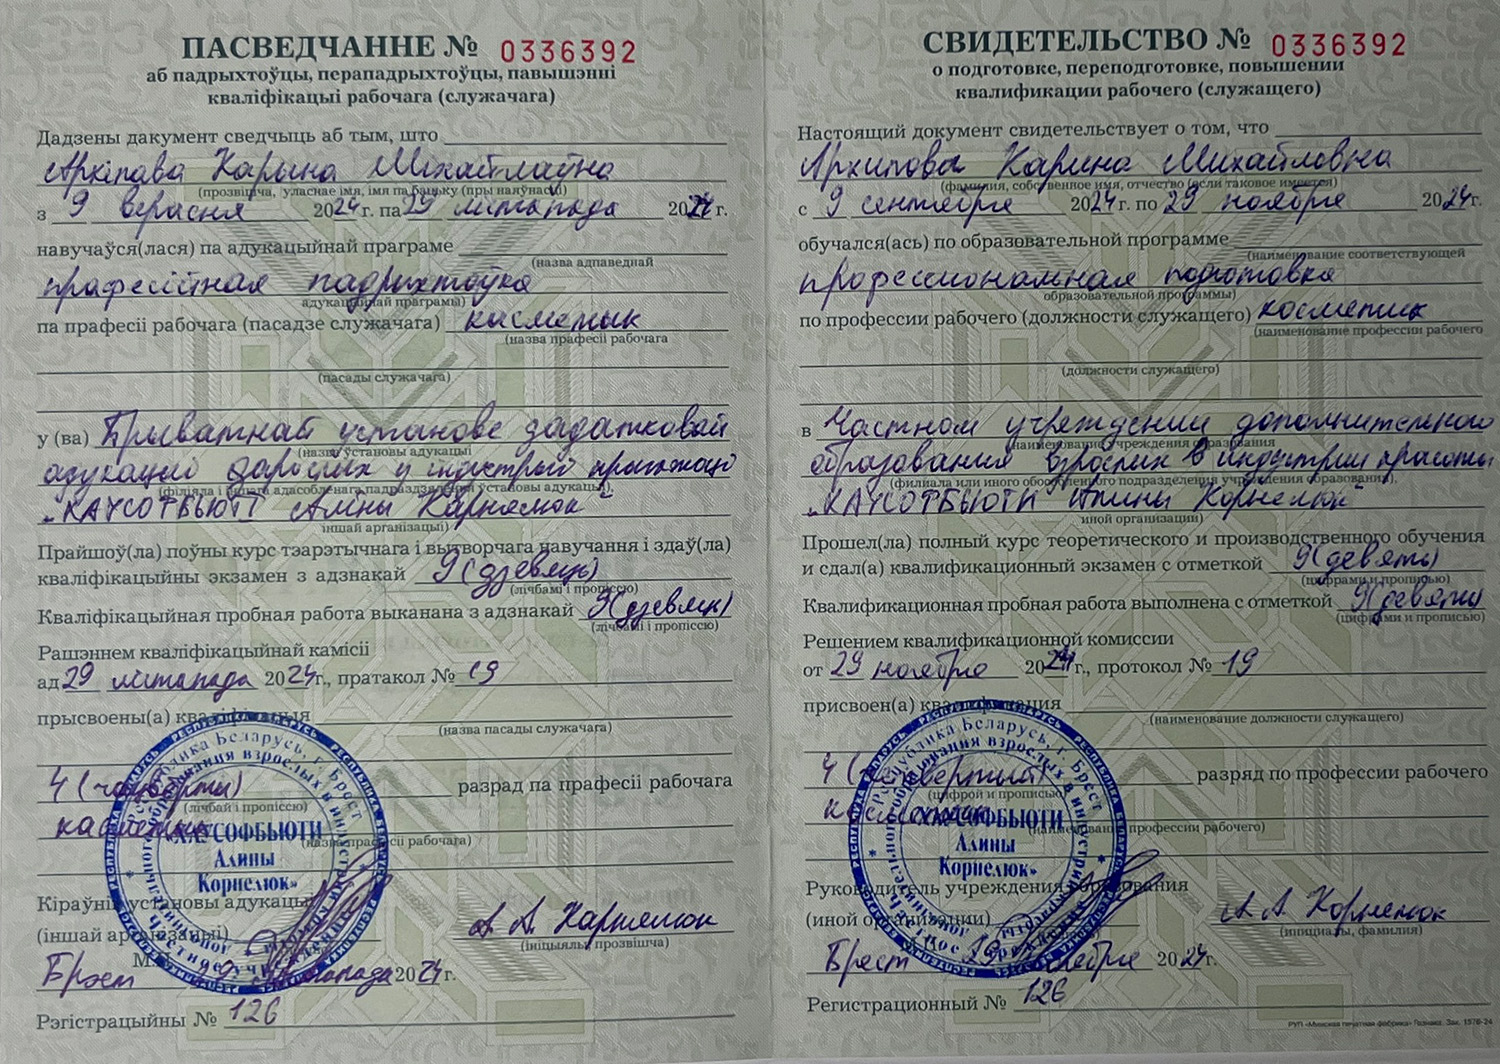 ПАСВЕДЧАННЕ № 0336392
аб падрыхтоўцы, перападрыхтоўцы, павышэнні
кваліфікацыі рабочага (служачага)
Дадзены дакумент сведчыць аб тым, што
Архіпава Карына Міхайлаўна
(прозвішча, уласнае імя, імя па бацьку (пры наяўнасці)
з 9 верасня 2024 г. па 29 лістапада 2024 г.
навучаўся(лася) па адукацыйнай праграме
(назва адпаведнай
прафесійная падрыхтоўка
адукацыйнай праграмы)
па прафесіі рабочага (пасадзе служачага) касметык
(назва прафесіі рабочага
(пасады служачага)
у (ва) Прыватнай установе дадатковай
(назва ўстановы адукацыі
адукацыі дарослых у індустрыі прыгажосці
(філіяла і іншага адасобленага падраздзялення ўстановы адукацыі),
"ХАУСОФБЬЮТІ Аліны Карнялюк"
іншай арганізацыі)
Прайшоў(ла) поўны курс тэарэтычнага і вытворчага навучання і здаў(ла)
кваліфікацыйны экзамен з адзнакай 9 (дзевяць)
(лічбамі і пропіссю)
Кваліфікацыйная пробная работа выканана з адзнакай 9 (дзевяць)
(лічбамі і пропіссю)
Рашэннем кваліфікацыйнай камісіі
ад 29 лістапада 2024 г., пратакол № 19
прысвоены(а) кваліфікацыя
(назва пасады служачага)
4 (чацвёрты) разрад па прафесіі рабочага
(лічбай і пропіссю)
касметык
(назва прафесіі рабочага)
Кіраўнік установы адукацыі
(іншай арганізацыі) А. А. Карнелюк
(ініцыялы, прозвішча)
М.П.
Брэст 29 лістапада 2024 г.
Рэгістрацыйны № 126
«ХАУСОФБЬЮТИ
Алины
Корнелюк»
СВИДЕТЕЛЬСТВО № 0336392
о подготовке, переподготовке, повышении
квалификации рабочего (служащего)
Настоящий документ свидетельствует о том, что
Архипова Карина Михайловна
(фамилия, собственное имя, отчество (если таковое имеется)
с 9 сентября 2024 г. по 29 ноября 2024 г.
обучался(ась) по образовательной программе
(наименование соответствующей
профессиональная подготовка
образовательной программы)
по профессии рабочего (должности служащего) косметик
(наименование профессии рабочего
(должности служащего)
в Частном учреждении дополнительного
(наименование учреждения образования
образования взрослых в индустрии красоты
(филиала или иного обособленного подразделения учреждения образования),
"ХАУСОФБЬЮТИ Алины Корнелюк"
иной организации)
Прошел(ла) полный курс теоретического и производственного обучения
и сдал(а) квалификационный экзамен с отметкой 9 (девять)
(цифрами и прописью)
Квалификационная пробная работа выполнена с отметкой 9 (девять)
(цифрами и прописью)
Решением квалификационной комиссии
от 29 ноября 2024 г., протокол № 19
присвоен(а) квалификация
(наименование должности служащего)
4 (четвертый) разряд по профессии рабочего
(цифрой и прописью)
косметик
(наименование профессии рабочего)
Руководитель учреждения образования
(иной организации) А. А. Корнелюк
(инициалы, фамилия)
М.П.
Брест 29 ноября 2024 г.
Регистрационный № 126
«ХАУСОФБЬЮТИ
Алины
Корнелюк»
РУП «Минская печатная фабрика» Гознака. Зак. 1576-24